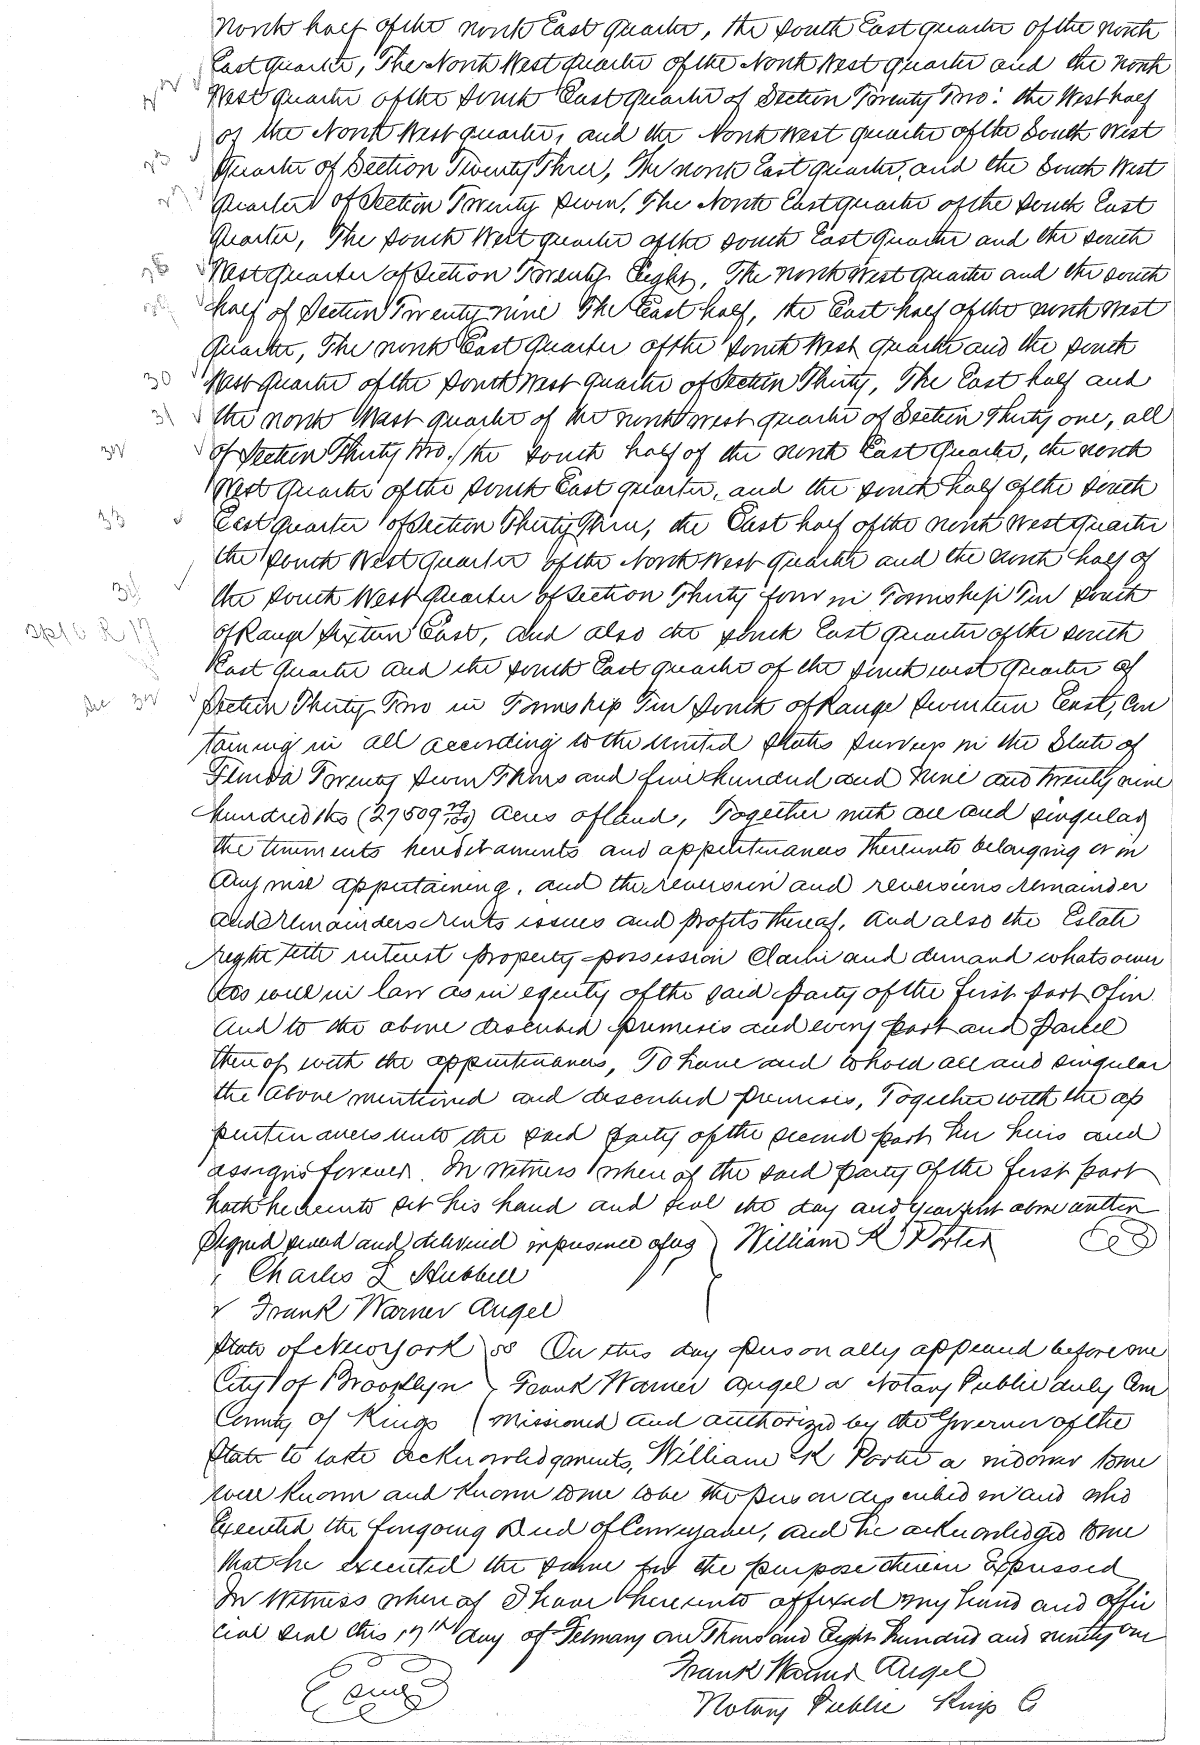 North half of the north East quarter, the South East quarter of the north
East quarter, The North West quarter of the North West quarter and the north
22 West quarter of the South East quarter of Section Twenty Two: the West half
of the North West quarter, and the North West quarter of the South West
23 Quarter of Section Twenty Three, The north East quarter, and the South West
27 Quarter of Section Twenty Seven. The North East quarter of the South East
Quarter, The South West quarter of the South East Quarter and the South
28 West quarter of Section Twenty Eight, The North West Quarter and the South
29 half of Section Twenty nine The East half, the East half of the north West
Quarter, The north East Quarter of the South West quarter and the South
30 West Quarter of the South West quarter of Section Thirty, The East half and
31 the north West quarter of the north west quarter of Section Thirty one, all
32 of Section Thirty Two. the South half of the north East Quarter, the north
West Quarter of the South East quarter, and the South half of the South
33 East quarter of Section Thirty Three, the East half of the north West quarter
the South West Quarter of the North West Quarter and the north half of
34 the South West Quarter of Section Thirty four in Township Ten South
R 17 of Range Sixteen East, and also the South East Quarter of the South
East Quarter and the South East quarter of the South west Quarter of
Sec 32 Section Thirty Two in Township Ten South of Range Seventeen East, Con
taining in all according to the United States Surveys in the State of
Florida Twenty Seven Thous and five hundred and Nine and twenty nine
hundredths (27509 29/100) acres of land, Together with all and singular
the tenements hereditaments and appurtenances thereunto belonging or in
any wise appertaining, and the reversion and reversions remainder
and remainders rents issues and profits thereof, and also the Estate
right title interest property possession Claim and demand whatsoever
as well in law as in equity of the said party of the first part of in
and to the above described premises and every part and parcel
thereof with the appurtenances, To have and to hold all and singular
the above mentioned and described premises, Together with the ap
purtenances unto the said party of the second part her heirs and
assigns forever. In Witness where of the said party of the first part
hath hereunto set his hand and seal the day and year first above written
Signed sealed and delivered in presence of us William K Porter Seal
Charles L Hubbell
Frank Warner Angel
State of New York ss On this day personally appeared before me
City of Brooklyn Frank Warner Angel a Notary Public duly Com
County of Kings missioned and authorized by the Governor of the
State to take acknowledgments, William K Porter a widower to me
well known and known to me to be the person described in and who
Executed the foregoing Deed of Conveyance, and he acknowledged to me
that he executed the same for the purpose therein Expressed
In Witness where of I have hereunto affixed my hand and offi
cial seal this 17th day of February one Thousand Eight hundred and ninety one
Frank Warner Angel
Seal Notary Public Kings Co